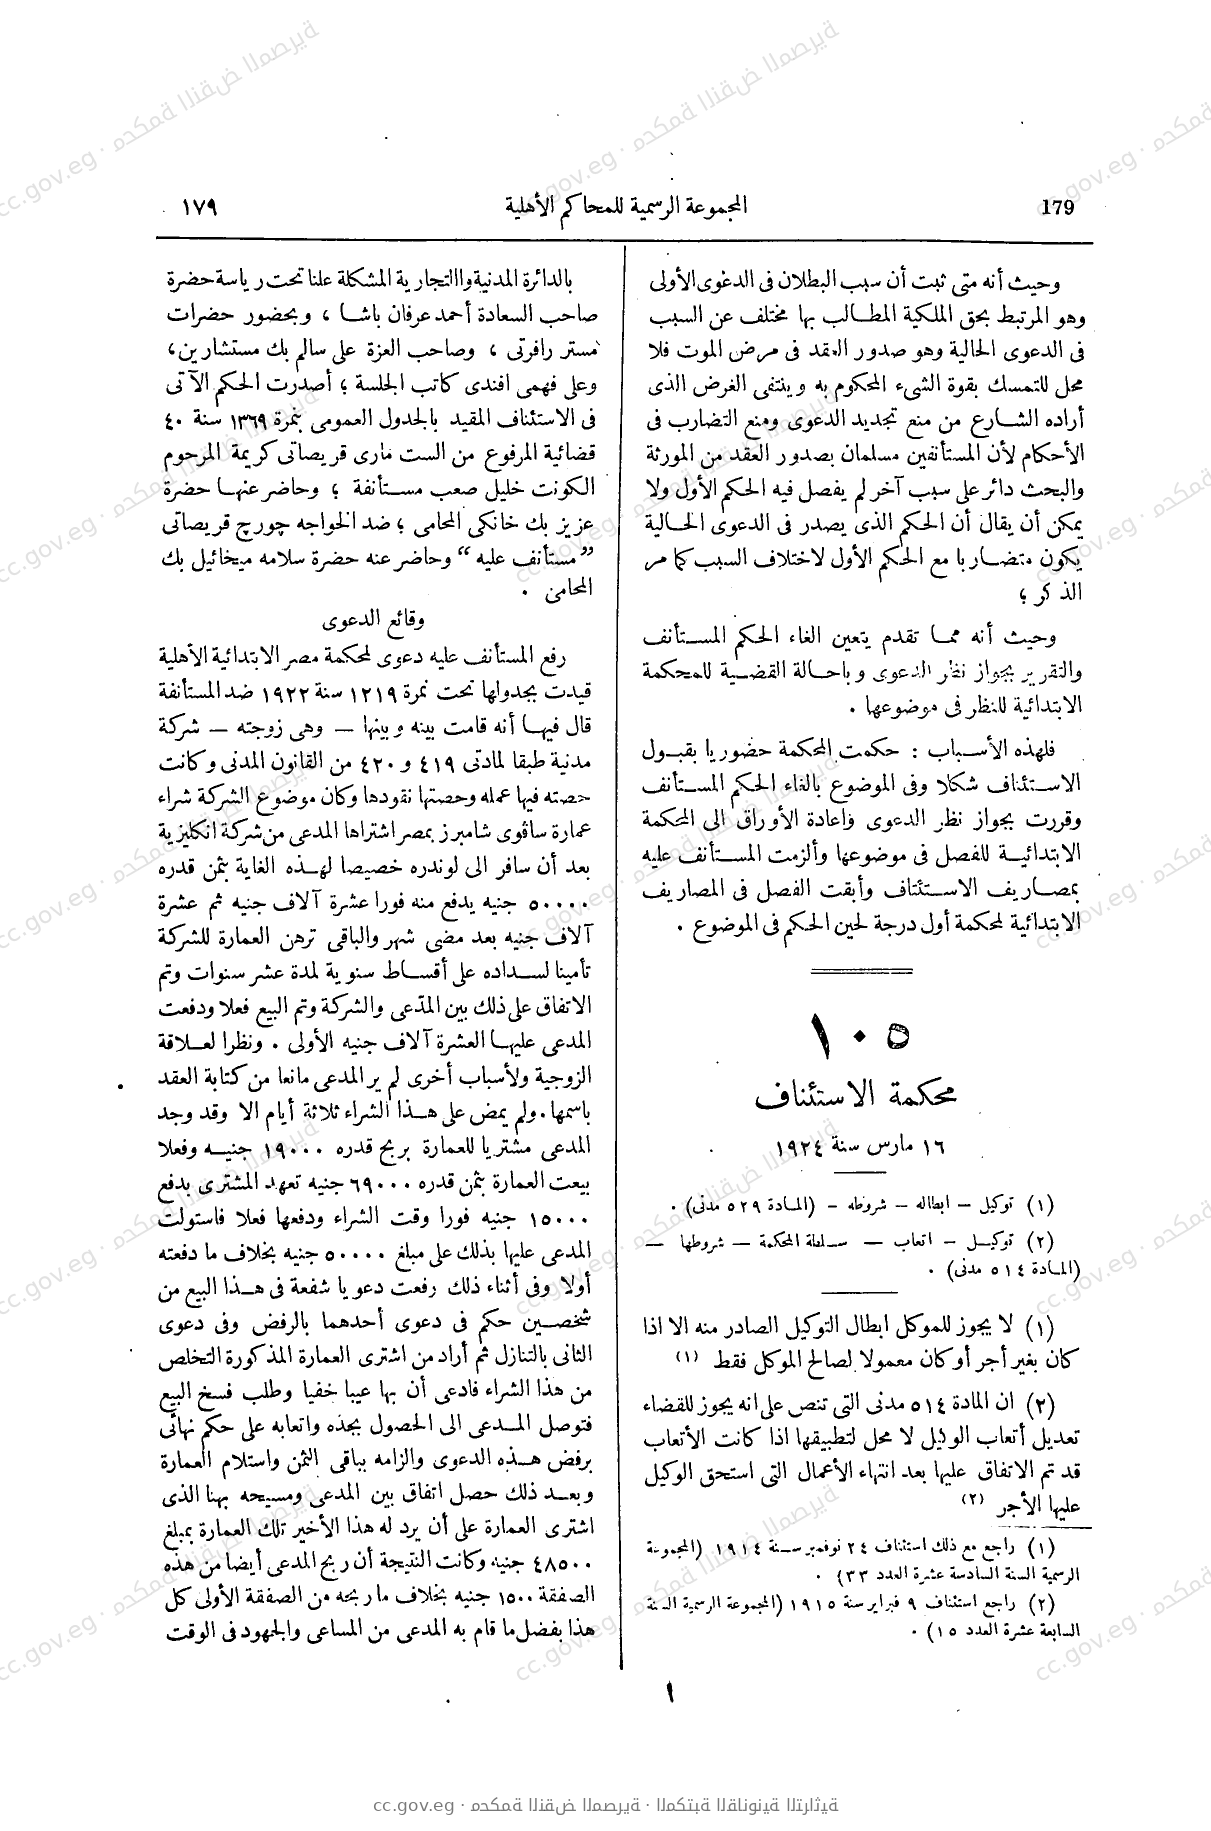 179
المجموعة الرسمية للمحاكم الأهلية
١٧٩
وحيث أنه متى ثبت أن سبب البطلان فى الدعوى الأولى
وهو المرتبط بحق الملكية المطالب بها مختلف عن السبب
فى الدعوى الحالية وهو صدور العقد فى مرض الموت فلا
محل للتمسك بقوة الشىء المحكوم به وينتفى الغرض الذى
أراده الشارع من منع تجديد الدعوى ومنع التضارب فى
الأحكام لأن المستأنفين مسلمان بصدور العقد من المورثة
والبحث دائر على سبب آخر لم يفصل فيه الحكم الأول ولا
يمكن أن يقال أن الحكم الذى يصدر فى الدعوى الحالية
يكون متضاربا مع الحكم الأول لاختلاف السبب كما مر
الذكر ؛
وحيث أنه مما تقدم يتعين الغاء الحكم المستأنف
والتقرير بجواز نظر الدعوى وباحالة القضية للمحكمة
الابتدائية للنظر فى موضوعها .
فلهذه الأسباب : حكمت المحكمة حضوريا بقبول
الاستئناف شكلا وفى الموضوع بالغاء الحكم المستأنف
وقررت بجواز نظر الدعوى واعادة الأوراق الى المحكمة
الابتدائية للفصل فى موضوعها وألزمت المستأنف عليه
بمصاريف الاستئناف وأبقت الفصل فى المصاريف
الابتدائية لمحكمة أول درجة لحين الحكم فى الموضوع .
١٠٥
محكمة الاستئناف
١٦ مارس سنة ١٩٢٤
(١) توكيل – ابطاله – شروطه – (المادة ٥٢٩ مدنى) .
(٢) توكيل – اتعاب – سلطة المحكمة – شروطها –
(المادة ٥١٤ مدنى) .
(١) لا يجوز للموكل ابطال التوكيل الصادر منه الا اذا
كان بغير أجر أو كان معمولا لصالح الموكل فقط (١)
(٢) ان المادة ٥١٤ مدنى التى تنص على انه يجوز للقضاء
تعديل أتعاب الوكيل لا محل لتطبيقها اذا كانت الأتعاب
قد تم الاتفاق عليها بعد انتهاء الأعمال التى استحق الوكيل
عليها الأجر (٢)
(١) راجع مع ذلك استئناف ٢٤ نوفمبر سنة ١٩١٤ (المجموعة
الرسمية السنة السادسة عشرة العدد ٣٣) .
(٢) راجع استئناف ٩ فبراير سنة ١٩١٥ (المجموعة الرسمية السنة
السابعة عشرة العدد ١٥) .
بالدائرة المدنية واالتجارية المشكلة علنا تحت رياسة حضرة
صاحب السعادة أحمد عرفان باشا ، وبحضور حضرات
مستر رافرتى ، وصاحب العزة على سالم بك مستشارين،
وعلى فهمى افندى كاتب الجلسة ؛ أصدرت الحكم الآتى
فى الاستئناف المقيد بالجدول العمومى بنمرة ١٣٦٩ سنة ٤٠
قضائية المرفوع من الست مارى قريصاتى كريمة المرحوم
الكونت خليل صعب مستأنفة ؛ وحاضر عنها حضرة
عزيز بك خانكى المحامى ؛ ضد الخواجه چورچ قريصاتى
”مستأنف عليه“ وحاضر عنه حضرة سلامه ميخائيل بك
المحامى .
وقائع الدعوى
رفع المستأنف عليه دعوى لمحكمة مصر الابتدائية الأهلية
قيدت بجدولها تحت نمرة ١٢١٩ سنة ١٩٢٢ ضد المستأنفة
قال فيها أنه قامت بينه وبينها – وهى زوجته – شركة
مدنية طبقا لمادتى ٤١٩ و ٤٢٠ من القانون المدنى وكانت
حصته فيها عمله وحصتها نقودها وكان موضوع الشركة شراء
عمارة ساڤوى شامبرز بمصر اشتراها المدعى من شركة انكليزية
بعد أن سافر الى لوندره خصيصا لهذه الغاية بثمن قدره
٥٠٠٠٠ جنيه يدفع منه فورا عشرة آلاف جنيه ثم عشرة
آلاف جنيه بعد مضى شهر والباقى ترهن العمارة للشركة
تأمينا لسداده على أقساط سنوية لمدة عشر سنوات وتم
الاتفاق على ذلك بين المدعى والشركة وتم البيع فعلا ودفعت
المدعى عليها العشرة آلاف جنيه الأولى . ونظرا لعلاقة
الزوجية ولأسباب أخرى لم ير المدعى مانعا من كتابة العقد
باسمها . ولم يمض على هذا الشراء ثلاثة أيام الا وقد وجد
المدعى مشتريا للعمارة بربح قدره ١٩٠٠٠ جنيه وفعلا
بيعت العمارة بثمن قدره ٦٩٠٠٠ جنيه تعهد المشترى بدفع
١٥٠٠٠ جنيه فورا وقت الشراء ودفعها فعلا فاستولت
المدعى عليها بذلك على مبلغ ٥٠٠٠٠ جنيه بخلاف ما دفعته
أولا وفى أثناء ذلك رفعت دعويا شفعة فى هذا البيع من
شخصين حكم فى دعوى أحدهما بالرفض وفى دعوى
الثانى بالتنازل ثم أراد من اشترى العمارة المذكورة التخلص
من هذا الشراء فادعى أن بها عيبا خفيا وطلب فسخ البيع
فتوصل المدعى الى الحصول بجده واتعابه على حكم نهائى
برفض هذه الدعوى والزامه بباقى الثمن واستلام العمارة
وبعد ذلك حصل اتفاق بين المدعى ومسيحه بهنا الذى
اشترى العمارة على أن يرد له هذا الأخير تلك العمارة بمبلغ
٤٨٥٠٠ جنيه وكانت النتيجة أن ربح المدعى أيضا من هذه
الصفقة ١٥٠٠ جنيه بخلاف ما ربحه من الصفقة الأولى كل
هذا بفضل ما قام به المدعى من المساعى والجهود فى الوقت
١
cc.gov.eg · محكمة النقض المصرية · المكتبة القانونية التراثية